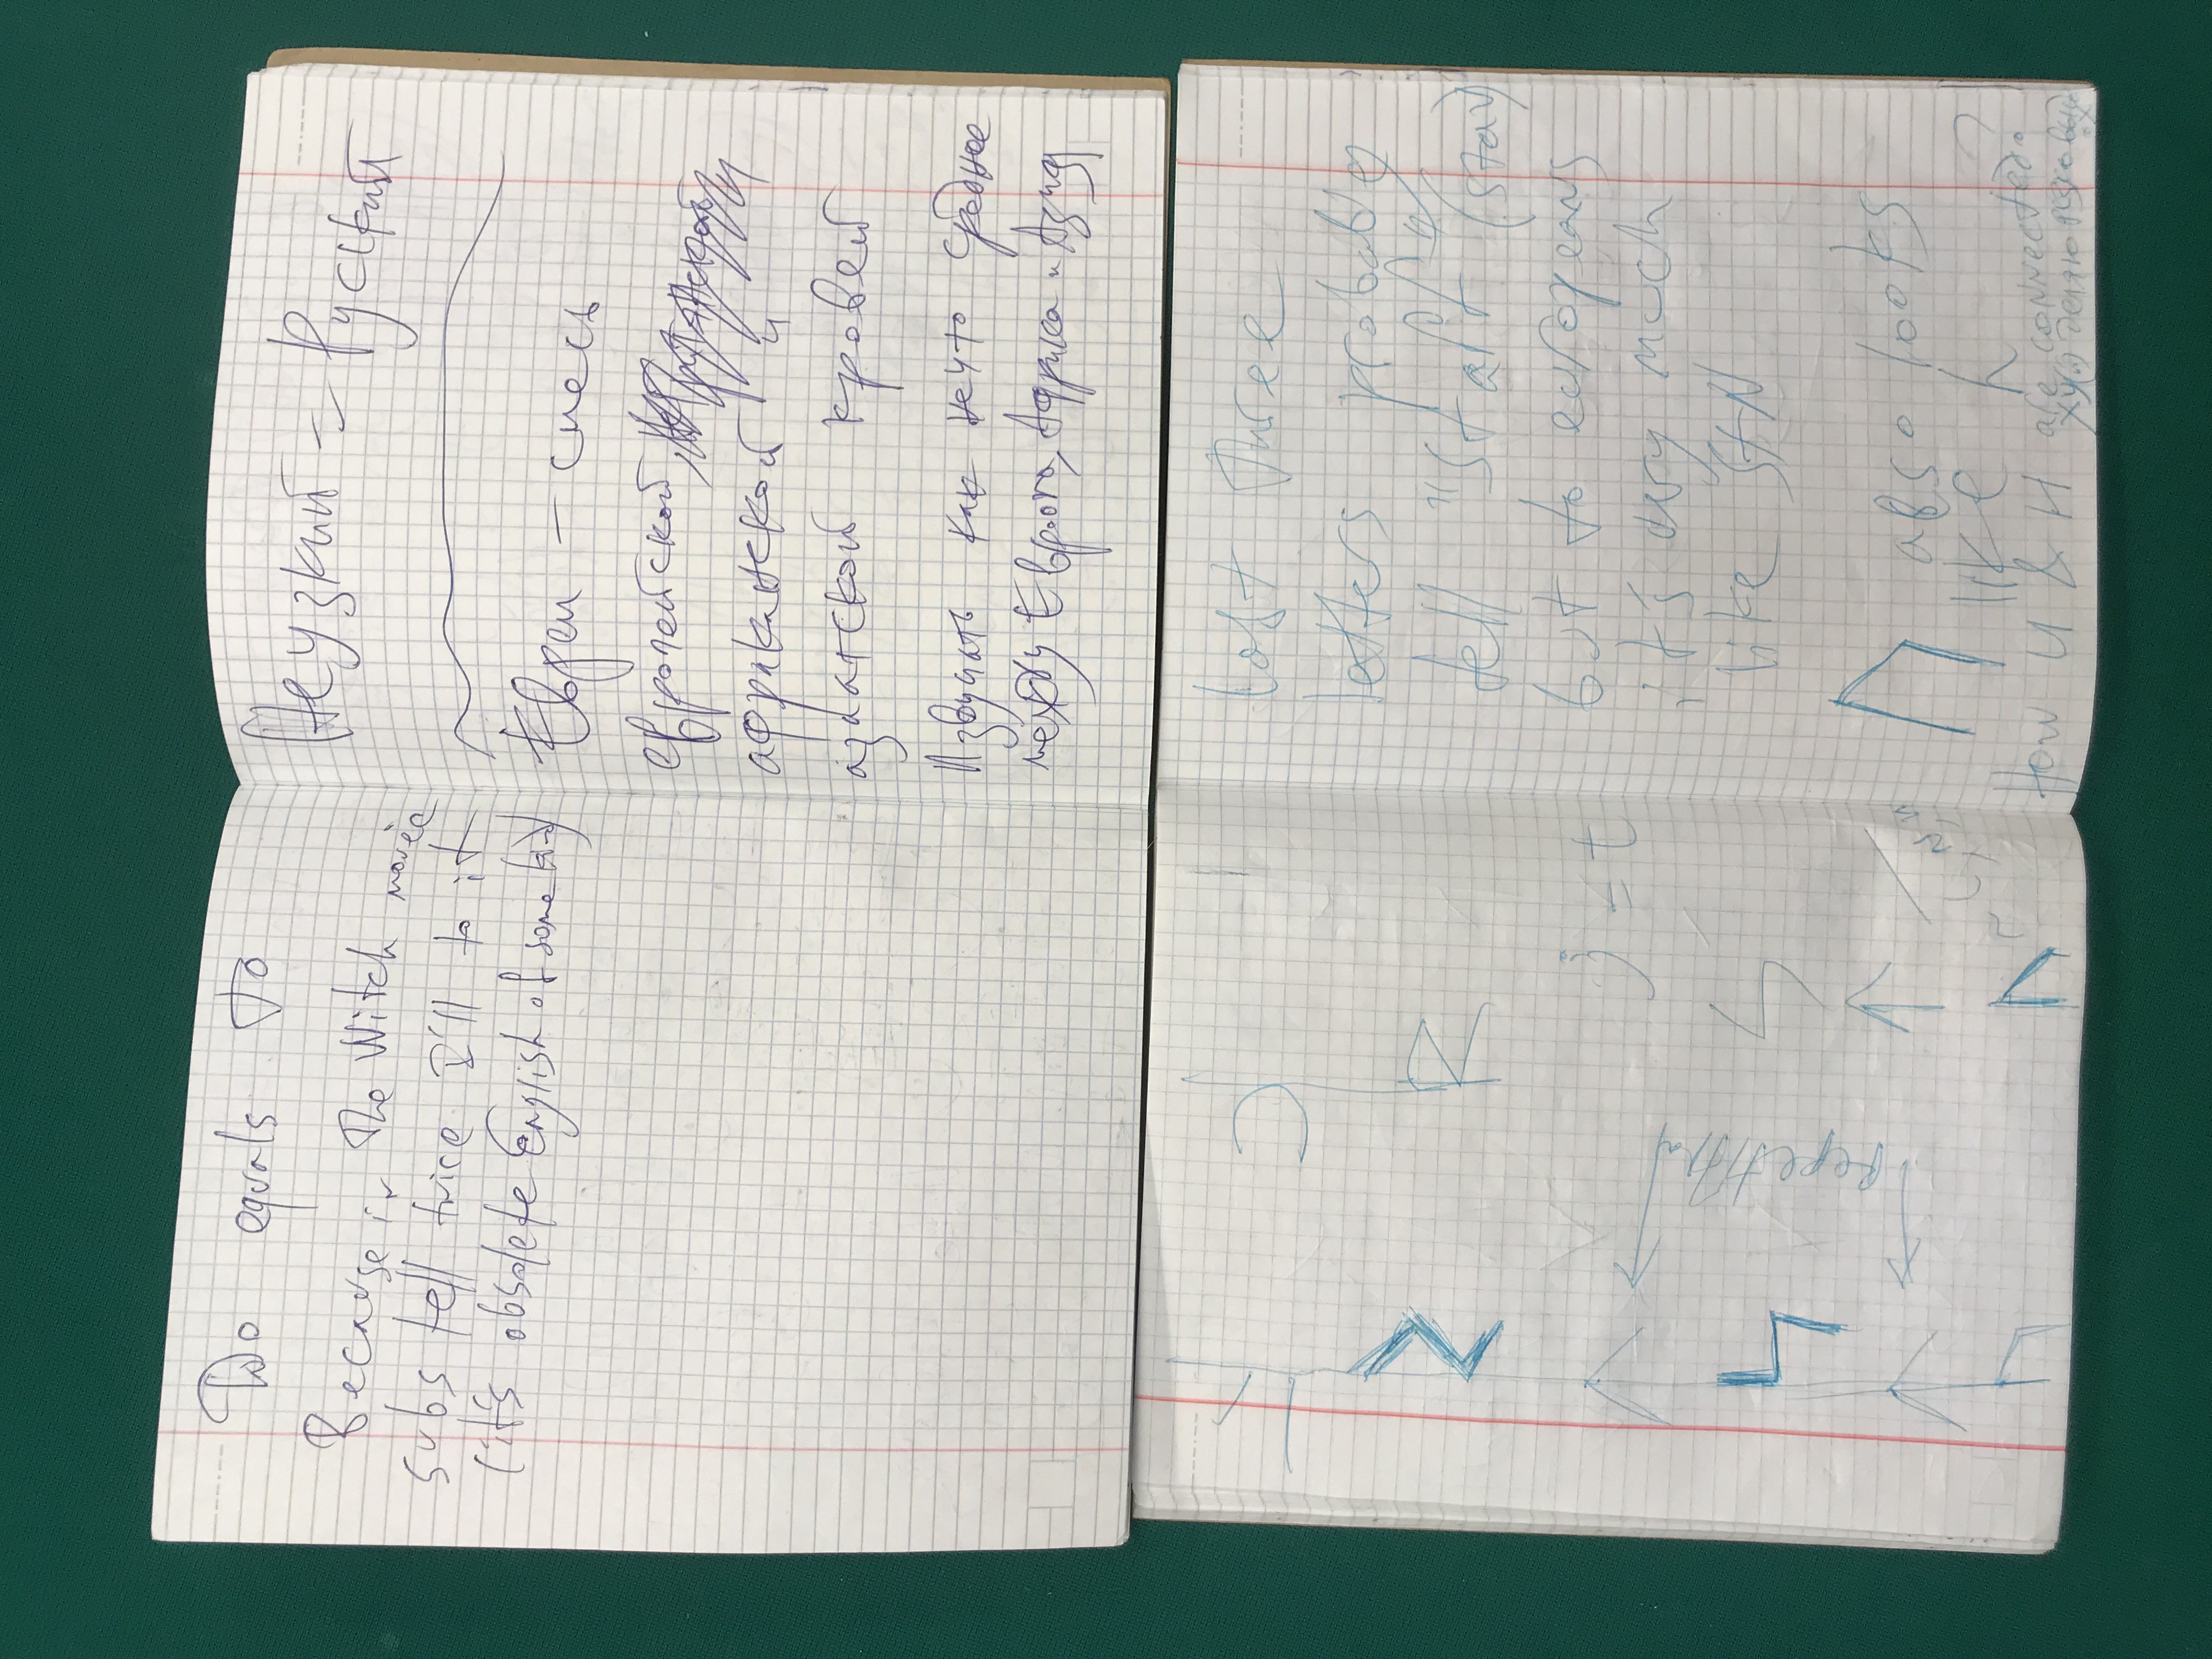 Do equals to
Because in The Witch movie
subs tell twice I'll to it
(it's obsolete English of some kind)
Неузкий = Русский
Евреи – смесь
европейской,
африканской и
азиатской кровей
И звучать как нечто среднее
между Европа, Африка и Азия
R
j = t
repetition
Last three
letters probably
tell "Staft" (stav)
but to europeans
it's very much
like StN
also looks
like h
How u & H are connected?